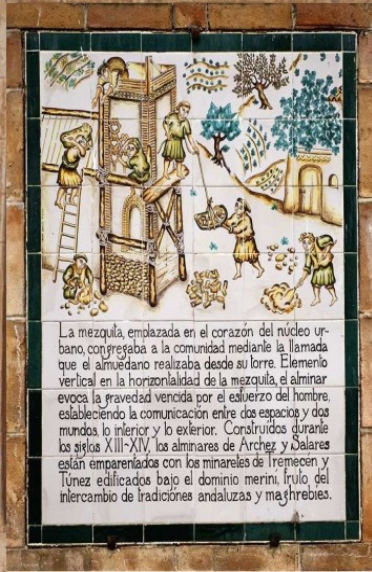 La mezquita, emplazada en el corazón del núcleo ur-
bano, congregaba a la comunidad mediante la llamada
que el almuedano realizaba desde su torre. Elemento
vertical en la horizontalidad de la mezquita, el alminar
evoca la gravedad vencida por el esfuerzo del hombre,
estableciendo la comunicación entre dos espacios y dos
mundos, lo interior y lo exterior. Construidos durante
los siglos XIII-XIV, los alminares de Archez y Salares
están emparentados con los minaretes de Tremecén y
Túnez edificados bajo el dominio meriní, fruto del
intercambio de tradiciones andaluzas y maghrebies.